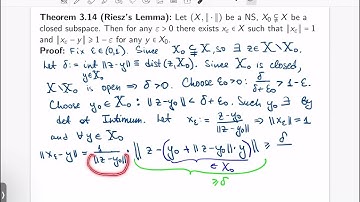 Theorem 3.14 (Riesz's Lemma): Let (X, ‖·‖) be a NS, X₀ ⊊ X be a
closed subspace. Then for any ε > 0 there exists x_ε ∈ X such that ‖x_ε‖ = 1
and ‖x_ε − y‖ ⩾ 1 − ε for any y ∈ X₀.
Proof: Fix ε∈(0,1). Since X₀⊊X, so ∃ z∈X\X₀.
Let δ:= inf_{y∈X₀} ‖z-y‖ ≡ dist(z,X₀). Since X₀ is closed,
X\X₀ is open ⇒ δ>0. Choose ε₀>0: δ/(δ+ε₀) > 1-ε.
Choose y₀∈X₀: ‖z-y₀‖ < δ+ε₀. Such y₀ ∃ by
def of infimum. Let x_ε = (z-y₀)/‖z-y₀‖ ⇒ ‖x_ε‖=1
and ∀y∈X₀
‖x_ε-y‖ = 1/‖z-y₀‖ · ‖z-(y₀+‖z-y₀‖·y)‖ ≥ δ
∈X₀
≥δ